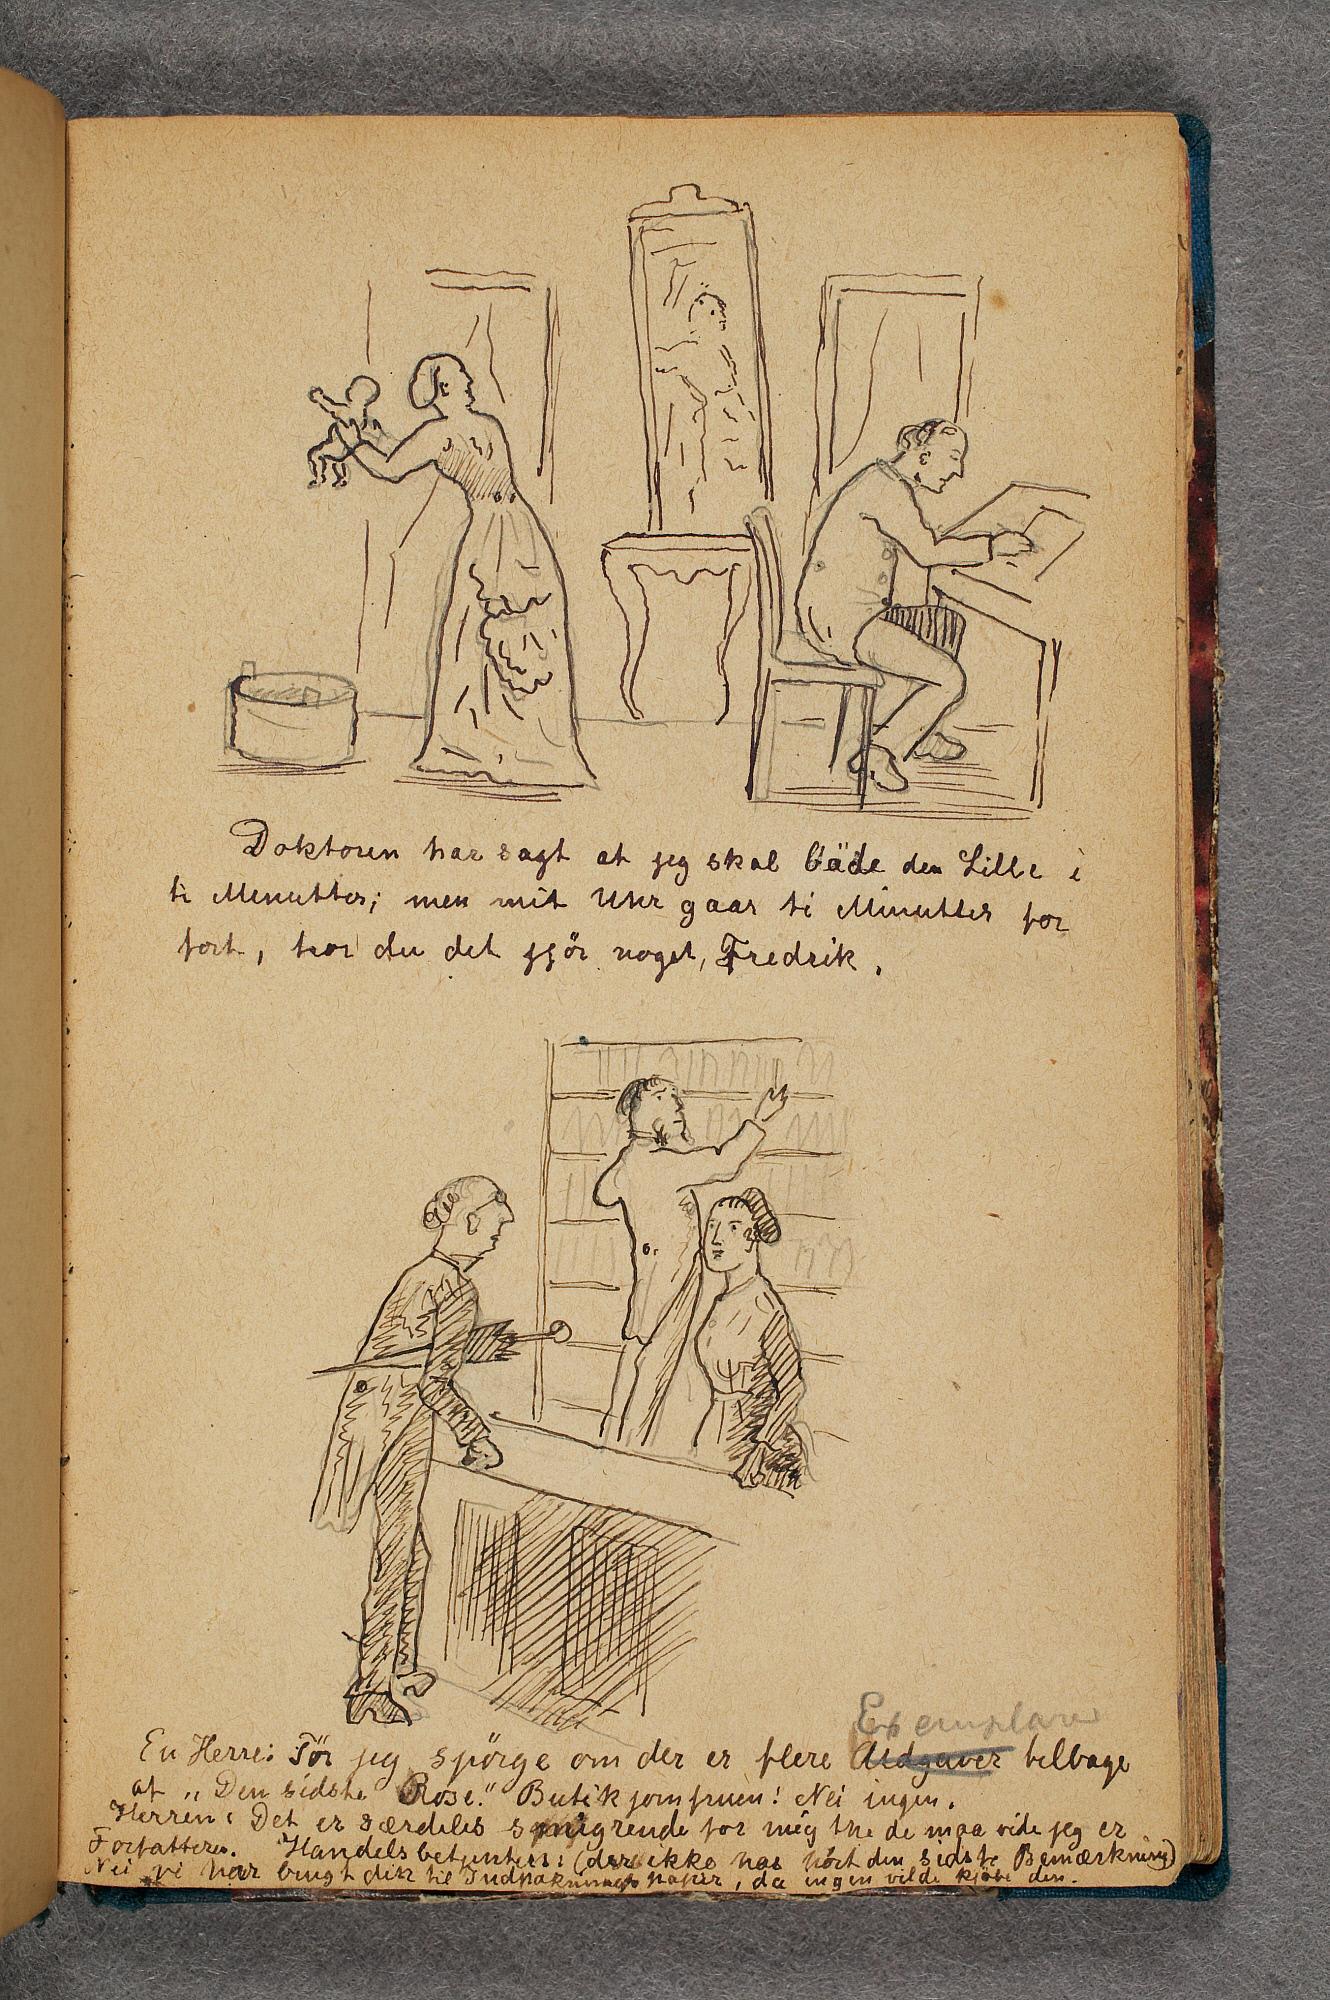 Doktoren har sagt at jeg skal bäde den Lille i
ti Menutter; men mit Uhr gaar ti Minutter for
fort, tror du det gjör noget, Fredrik.
Exemplarer
En Herre: Tör jeg spörge om der er flere Udgaver tilbage
af „Den sidste Rose." Butikjomfruen! Nei ingen.
Herren: Det er særdeles smigrende for mig the de maa vide jeg er
Forfatteren. Handelsbetjenten: (der ikke har hört den sidste Bemærkning)
Nei vi har brugt den til Indpakningspapir, da ingen vilde kjöbe den.